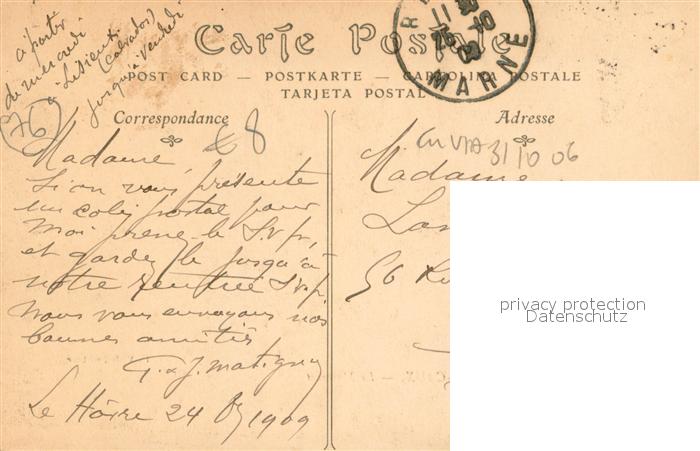 à partir
de mercredi
Lisieux
(Calvados)
jusqu'à vendredi
Carte Postale
POST CARD — POSTKARTE — CARTOLINA POSTALE
TARJETA POSTAL
MARNE
76
Correspondance
Adresse
€8
31/10 06
Madame,
Si on vous présente
un colis postal pour
moi prenez-le S.v.p,
et gardez le jusqu'à
notre rentrée S.v.p.
Nous vous envoyons nos
bonnes amitiés
G. & J. Matigny
Le Hâvre 24 1909
Madame
56 Ru
privacy protection
Datenschutz